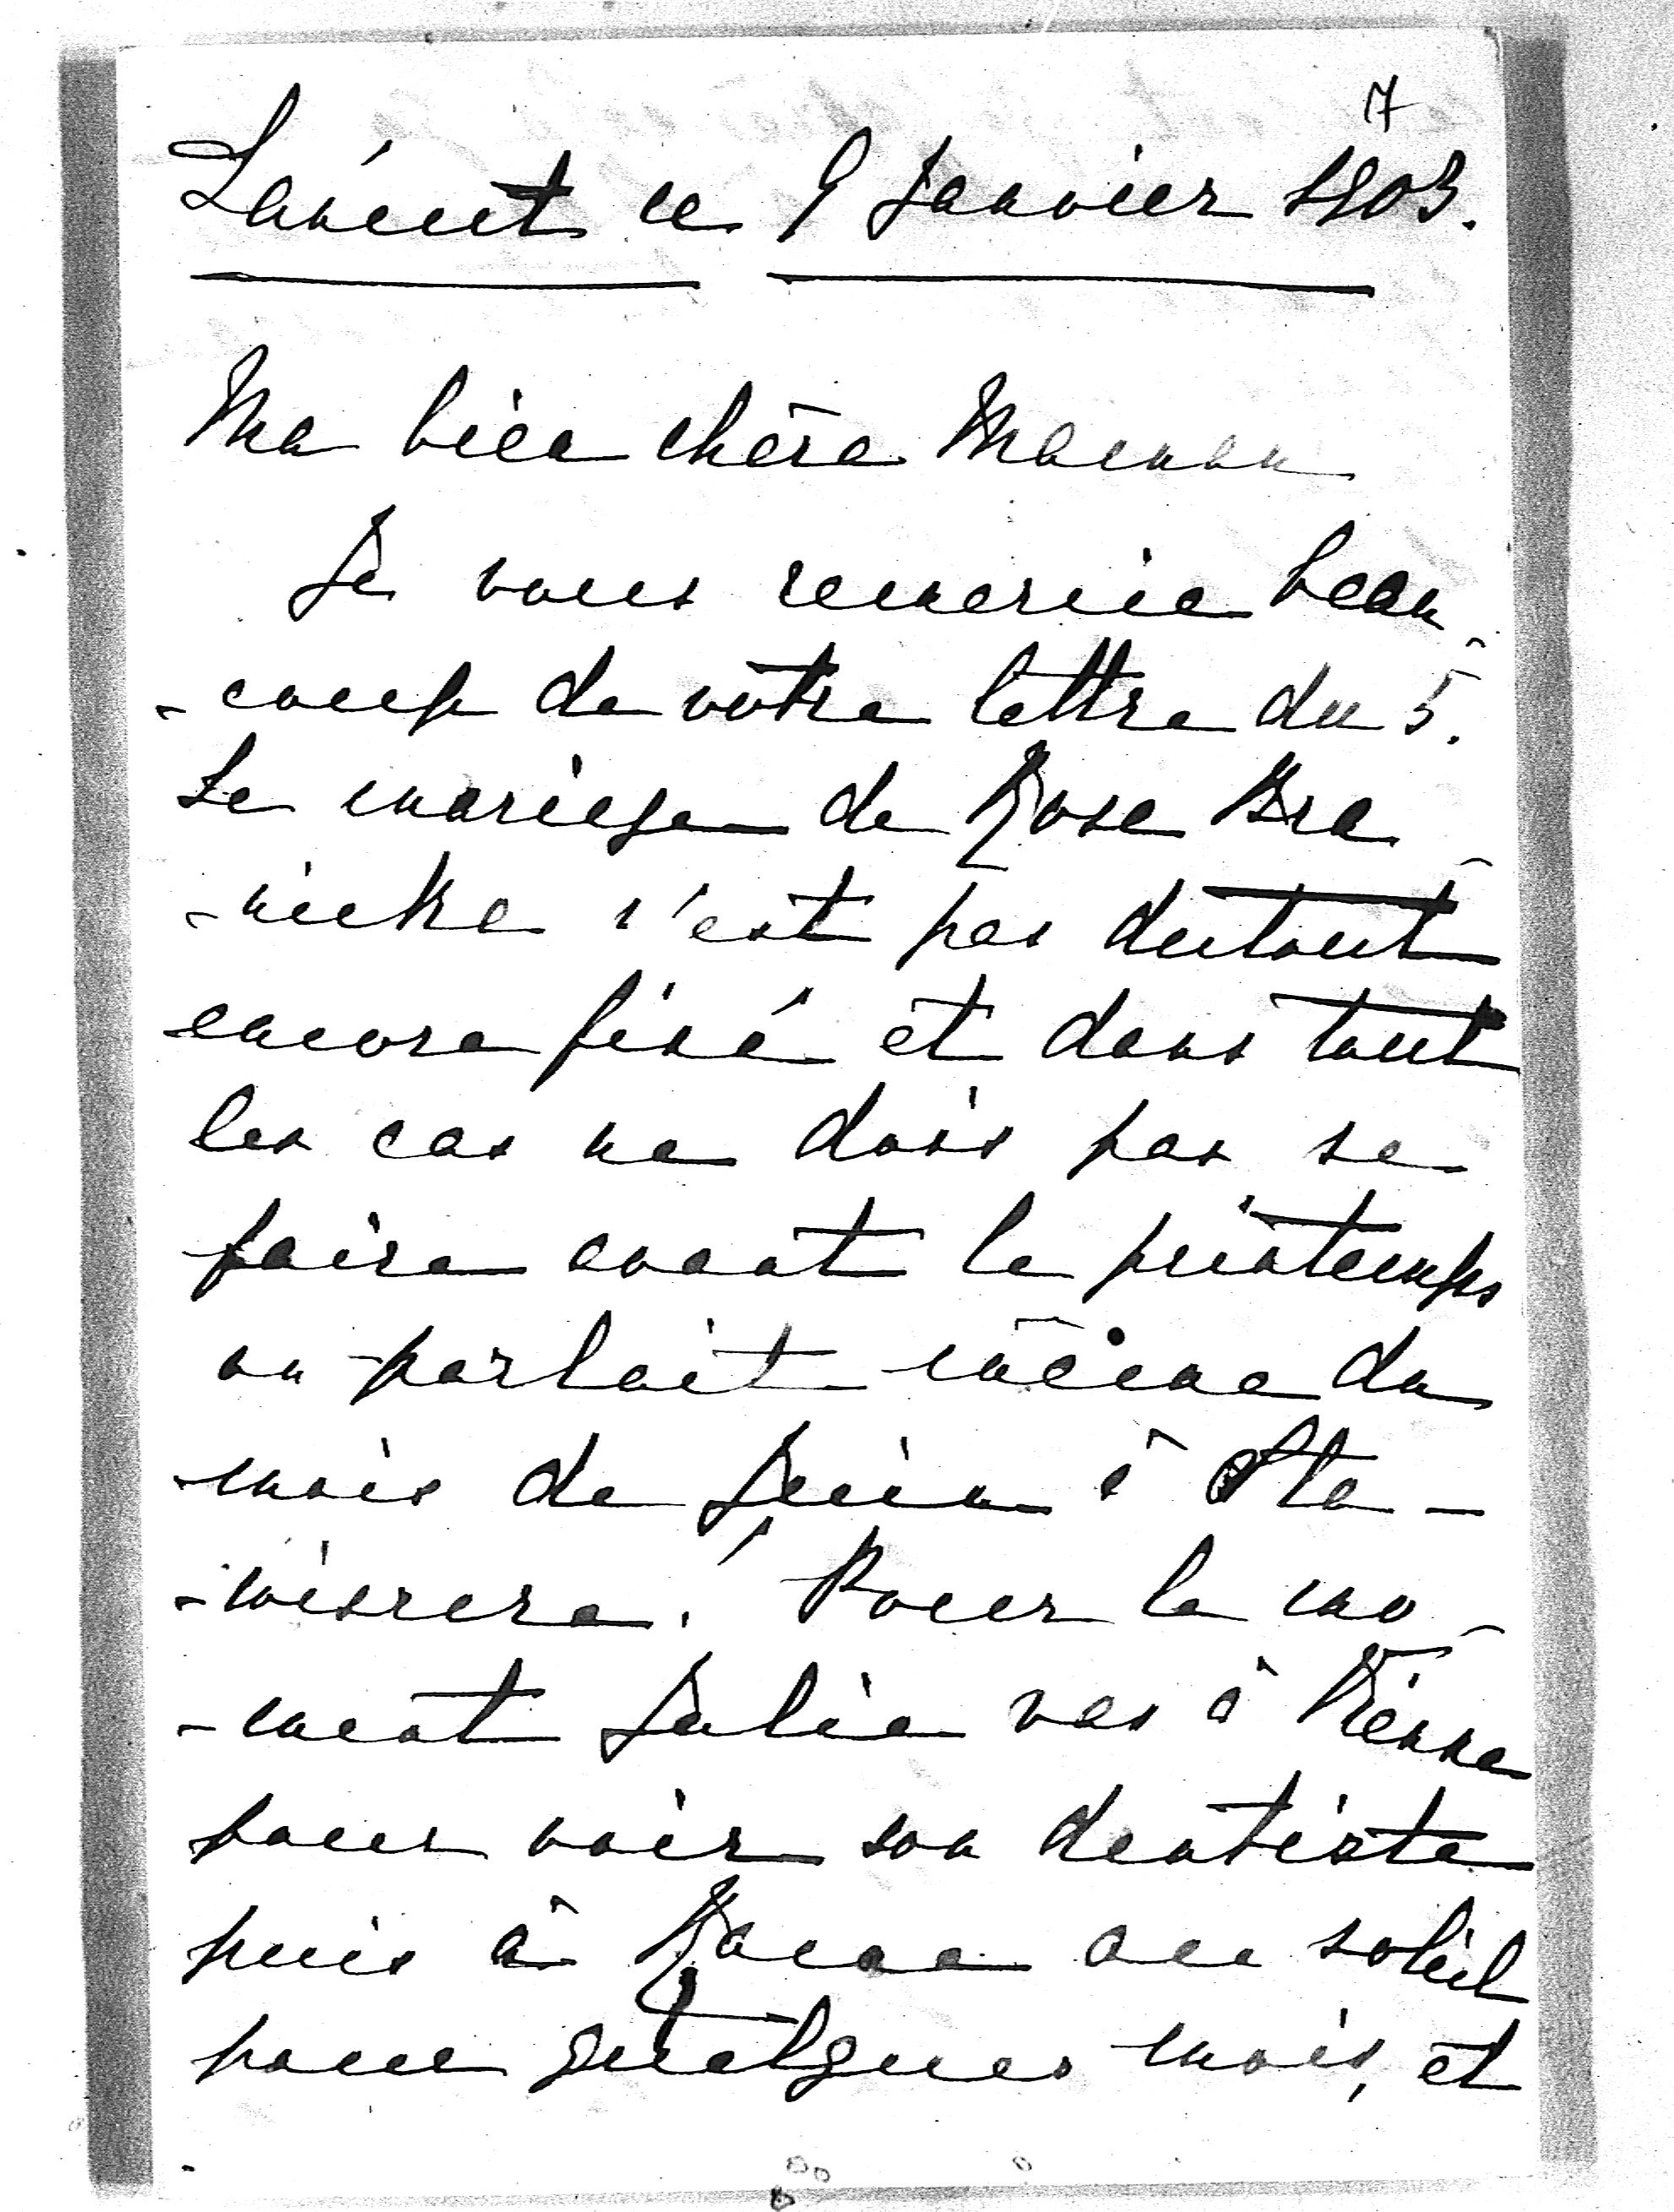 7
Łańcut ce 9 Janvier 1903.
Ma bien chère Maman
Je vous remercie beau-
-coup de vôtre lettre du 5.
Le mariage de Rose Bra-
-nicka n'est pas dutout
encore fixé et dans tout
les cas ne dois pas se
faire avant le printemps
on parlait même du
mois de Juin à Sta-
-wisrcra! Pour le mo-
-ment Julia vas à Vienne
pour voir son dentiste
puis à Rome au soleil
pour quelques mois, et